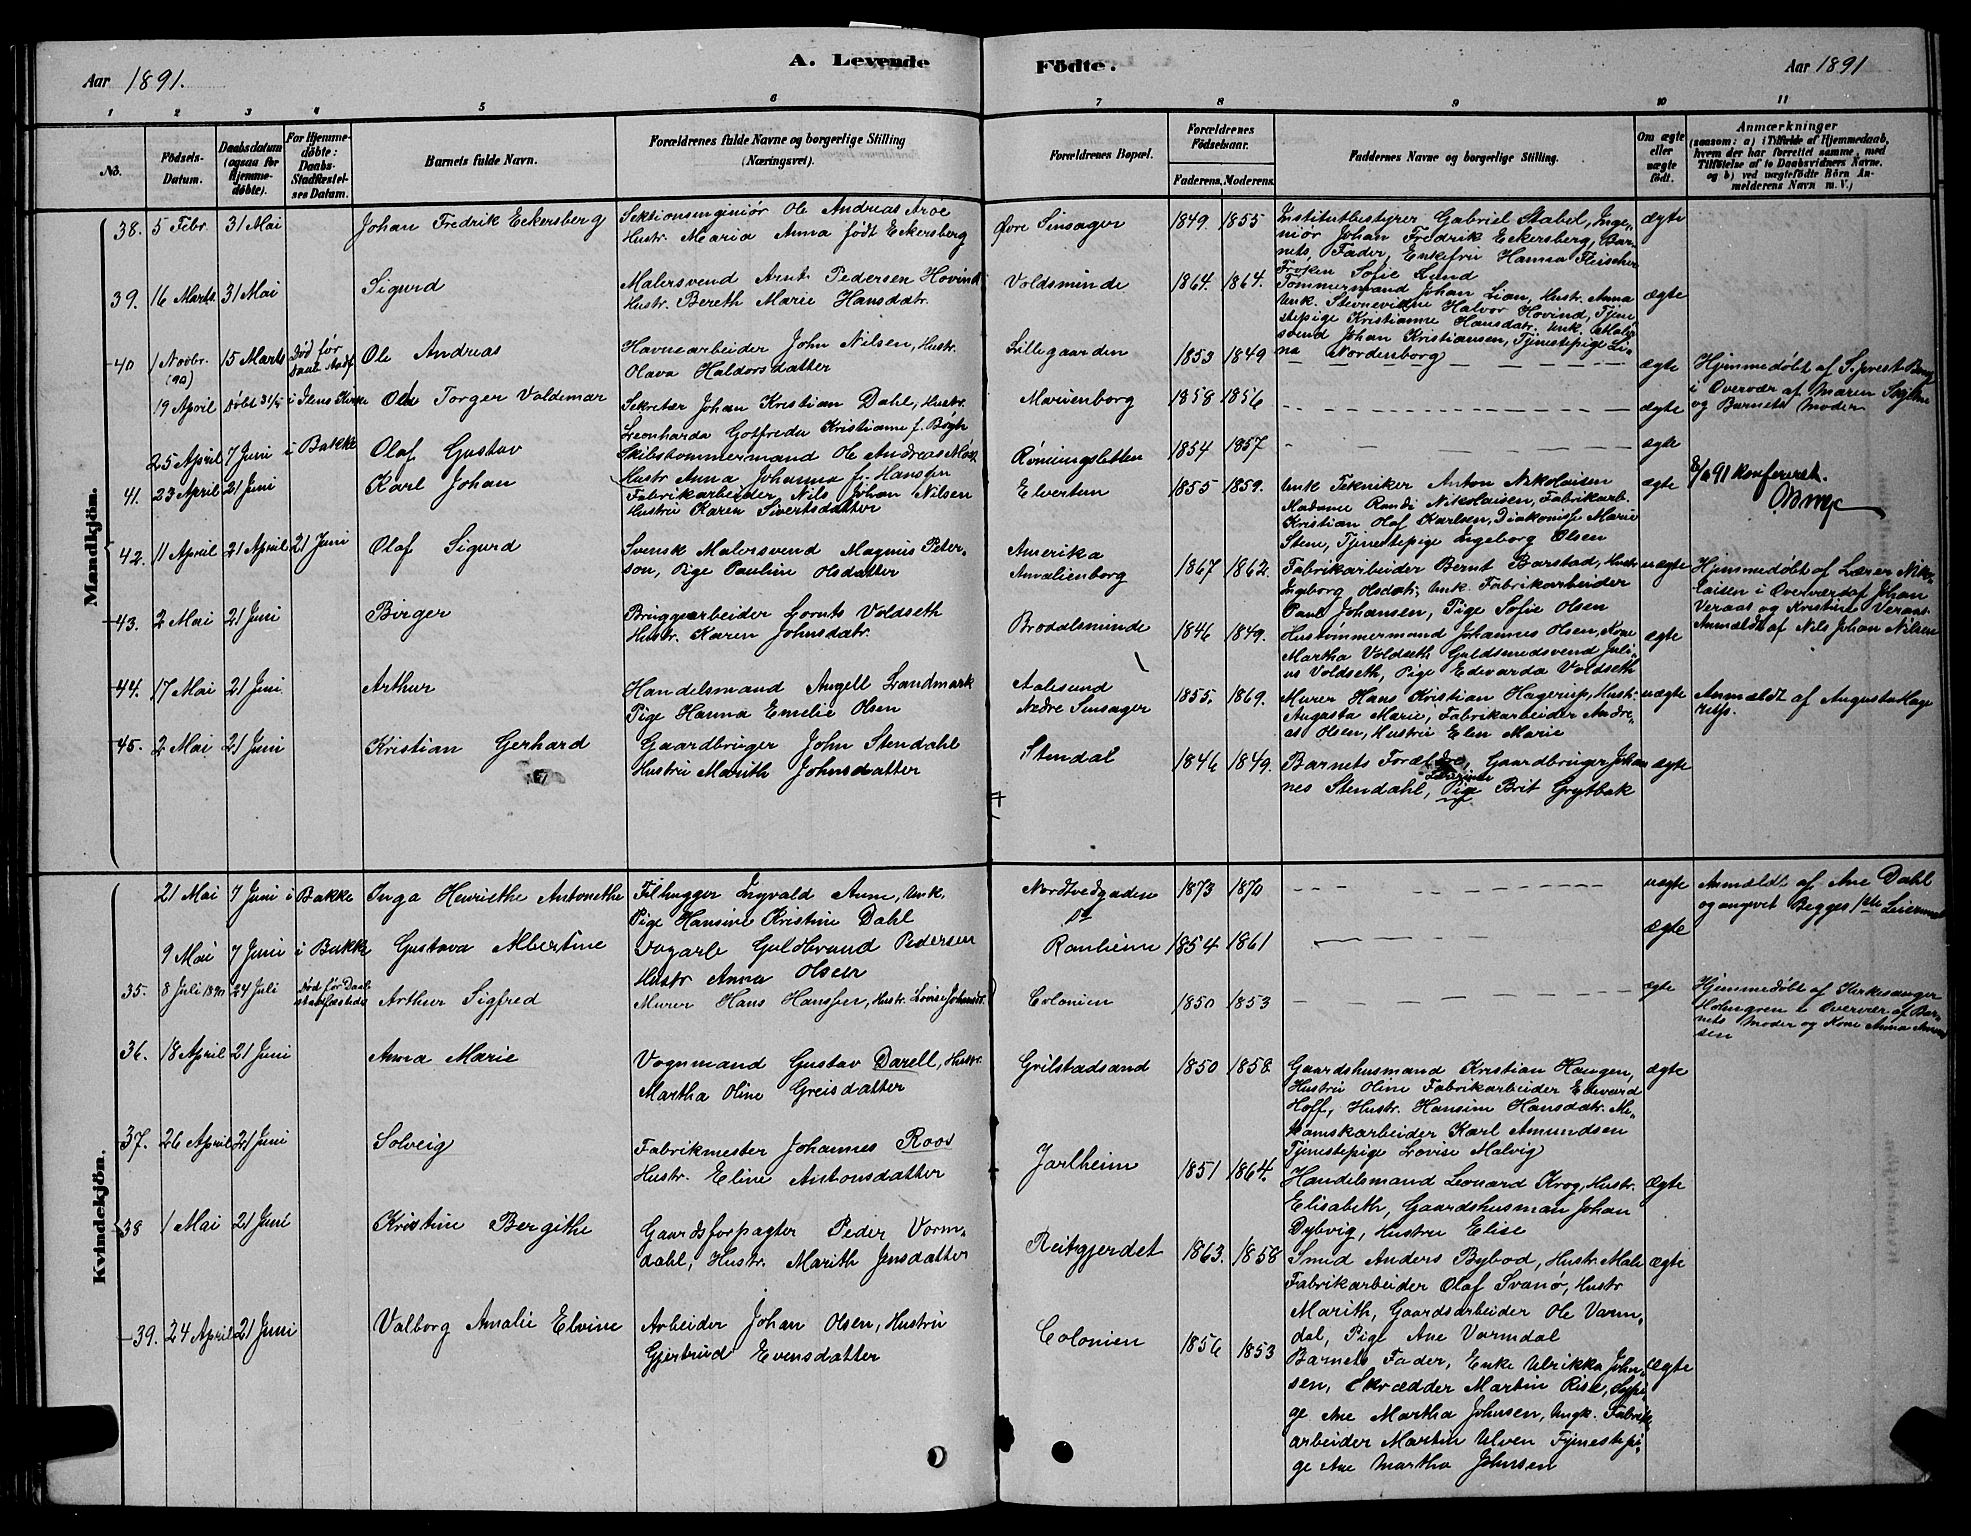 Aar 1891.
A. Levende
Födte.
Aar 1891
1 2 3 4 5 6 7 8 9 10 11
No.
Födsels-
Datum.
Daabsdatum
(ogsaa for
Hjemme-
döbte).
For Hjemme-
döbte:
Daabs-
Stadfæstel-
ses Datum.
Barnets fulde Navn.
Forældrenes fulde Navne og borgerlige Stilling
(Næringsvei).
Forældrenes Bopæl.
Forældrenes
Födselsaar.
Faderens. Moderens.
Faddernes Navne og borgerlige Stilling.
Om ægte
eller
uægte
födt.
Anmærkninger
(saasom: a) i Tilfælde af Hjemmedaab,
hvem der har forrettet samme, med
Tilföielse af to Daabsvidners Navne,
og b) ved uægtefödte Börn An-
melderens Navn m. V.)
Mandkjön.
38. 5 Febr. 31 Mai
Johan Fredrik Eckersberg
Sektionsingeniör Ole Andreas Aroe
Hustr. Maria Anna födt Eckersberg
Øvre Sinsager
1849. 1855
Institutbestyrer Gabriel Stabel, Inge-
niör Johan Fredrik Eckersberg, Bar-
nets Fader, Enkefru Hanna Fleischer
Fröken Sofie Lund
ægte
39. 16 Marts 31 Mai
Sigurd
Malersvend Arnt Pedersen Hovind
Hustr. Bereth Marie Hansdatr.
Voldsminde
1864. 1864.
Tömmermand Johan Lian, Hustr. Anna
Unk. Stevnevidne Halvor Hovind, Tjene
stepige Kristianne Hansdatr. Unk. Maler
svend Johan Kristiansen, Tjenestepige Li-
na Nordenborg
ægte
40 1 Novbr. (90) 15 Marts Död för Daabs Stadf
Ole Andreas
Havnearbeider John Nilsen, Hustr.
Olava Haldorsdatter
Lillegaarden
1853 1849
ægte
Hjemmedöbt af S. prest Bang
i Overvær af Maren Skjelne
og Barnets Moder
19 April Döbt 31/5 i Ilens Kirke
Ole Torger Valdemar
Sekretær Johan Kristian Dahl, Hustr.
Leonharda Gotfreda Kristianne f. Bögh
Marienborg
1858 1856
ægte
25 April 7 Juni i Bakke
Olaf Gustav
Skibstömmermand Ole Andreas Moe
Hustr Anna Johanna f. Hansen
Rönningsletten
1854 1857
ægte
41. 23 April 21 Juni
Karl Johan
Fabrikarbeider Nils Johan Nilsen
Hustru Karen Sivertsdatter
Elvertun
1855 1859.
Unk Tekniker Anton Nikolaisen
Madame Randi Nikolaisen, Fabrikarb.
Kristian Olaf Karlsen, Diakonisse Marie
Stene, Tjenestepige Ingeborg Olsen
ægte
8/6 91 konfereret.
42. 11 April 21 April 21 Juni
Olaf Sigurd
Svensk Malersvend Magnus Peter-
son, Pige Pauline Olsdatter
Amerika
Amalienborg
1867 1862.
Fabrikarbeider Bernt Barstad, Hustr
Ingeborg Olsdatr, Unk. Fabrikarbeider
Paul Johansen, Pige Sofie Olsen
uægte
Hjemmedöbt af Lærer Nik-
laisen i Overvær af Johan
Veraas og Kristine Veraas
Anmeldt af Nils Johan Nilsen
43. 2 Mai 21 Juni
Birger
Bryggearbeider Lornts Voldseth
Hustr. Karen Johnsdatr.
Brodalsminde
1846 1849.
Hustömmermand Johannes Olsen, Kone
Martha Voldseth Guldsmedsvend Juli-
us Voldseth, Pige Edvarda Voldseth
ægte
44. 17 Mai 21 Juni.
Arthur
Handelsmand Angell Landmark
Pige Hanna Emelie Olsen
Aalesund
Nedre Sinsager
1855. 1869.
Murer Hans Kristian Hagerup, Hustr.
Augusta Marie, Fabrikarbeider Andre-
as Olsen, Hustru Elen Marie
uægte
Anmældt af Augusta Hage
rup.
45. 2 Mai 21 Juni
Kristian Gerhard
Gaardbruger John Stendahl
Hustru Marith Johnsdatter
Stendal
1846 1849.
Barnets Forældre, Gaardbruger Johan
nes Stendahl, Lærerinde Pige Brit Grytbak
ægte
Kvindekjön.
21 Mai 7 Juni i Bakke
Inga Henriethe Antonethe
Filhugger Ingvald Aune, Unk.
Pige Hansine Kristine Dahl
Nordtvedgaden
do
1873 1870
uægte
Anmældt af Ane Dahl
og angivet Begges 1ste Leiermaal
9 Mai 7 Juni i Bakke
Gustava Albertine
Sagarb. Guldbrand Pedersen
Hustr Anna Olsen
Ranheim
1854 1861
ægte
35. 8 Juli 1890 24 Juli Död för Daabs stadfæstelse
Arthur Sigfred
Murer Hans Hanssen, Hustr. Lovise Johansd.
Colonien
1850 1853
ægte
Hjemmedöbt af Kirkesanger
Holmgren i Overvær af Bar-
nets Moder og Kone Anna
sen
36. 18 April 21 Juni
Anna Marie
Vognmand Gustav Darell, Hustr.
Martha Oline Greisdatter
Grilstadsand
1850 1858
Gaardshusmand Kristian Haugen,
Hustru Oline Fabrikarbeider Edvard
Hoff, Hustr. Hansine Hansdatr. Me-
kanskarbeider Karl Amundsen
Tjenestepige Lovise Malvig
ægte
37. 26 April 21 Juni
Solveig
Fabrikmester Johannes Roos
Hustr. Eline Antonsdatter
Jarlheim
1851 1864.
Handelsmand Leonard Krog, Hustr.
Elisabeth, Gaardshusman Johan
Dybvig, Hustru Elise
ægte
38 1 Mai 21 Juni
Kristine Bergithe
Gaardsforpagter Peder Vorm-
dahl, Hustr. Marith Jensdatter
Reitgjerdet
1863. 1858
Smed Anders Bybod, Hustr. Mali
Fabrikarbeider Olaf Svanö, Hustr
Marith, Gaardsarbeider Ole Varm-
dal, Pige Ane Varmdal
ægte
39. 24 April 21 Juni
Valborg Amalie Elvine
Arbeider Johan Olsen, Hustru
Gjertrud Evensdatter
Colonien
1856 1853
Barnets Fader, Enke Ulrikka John-
sen, Skrædder Martin Rise, Sypi-
ge Ane Martha Johnsen, Ungk. Fabrik
arbeider Martin Ulven Tjenestepi-
ge Ane Martha Johnsen
ægte